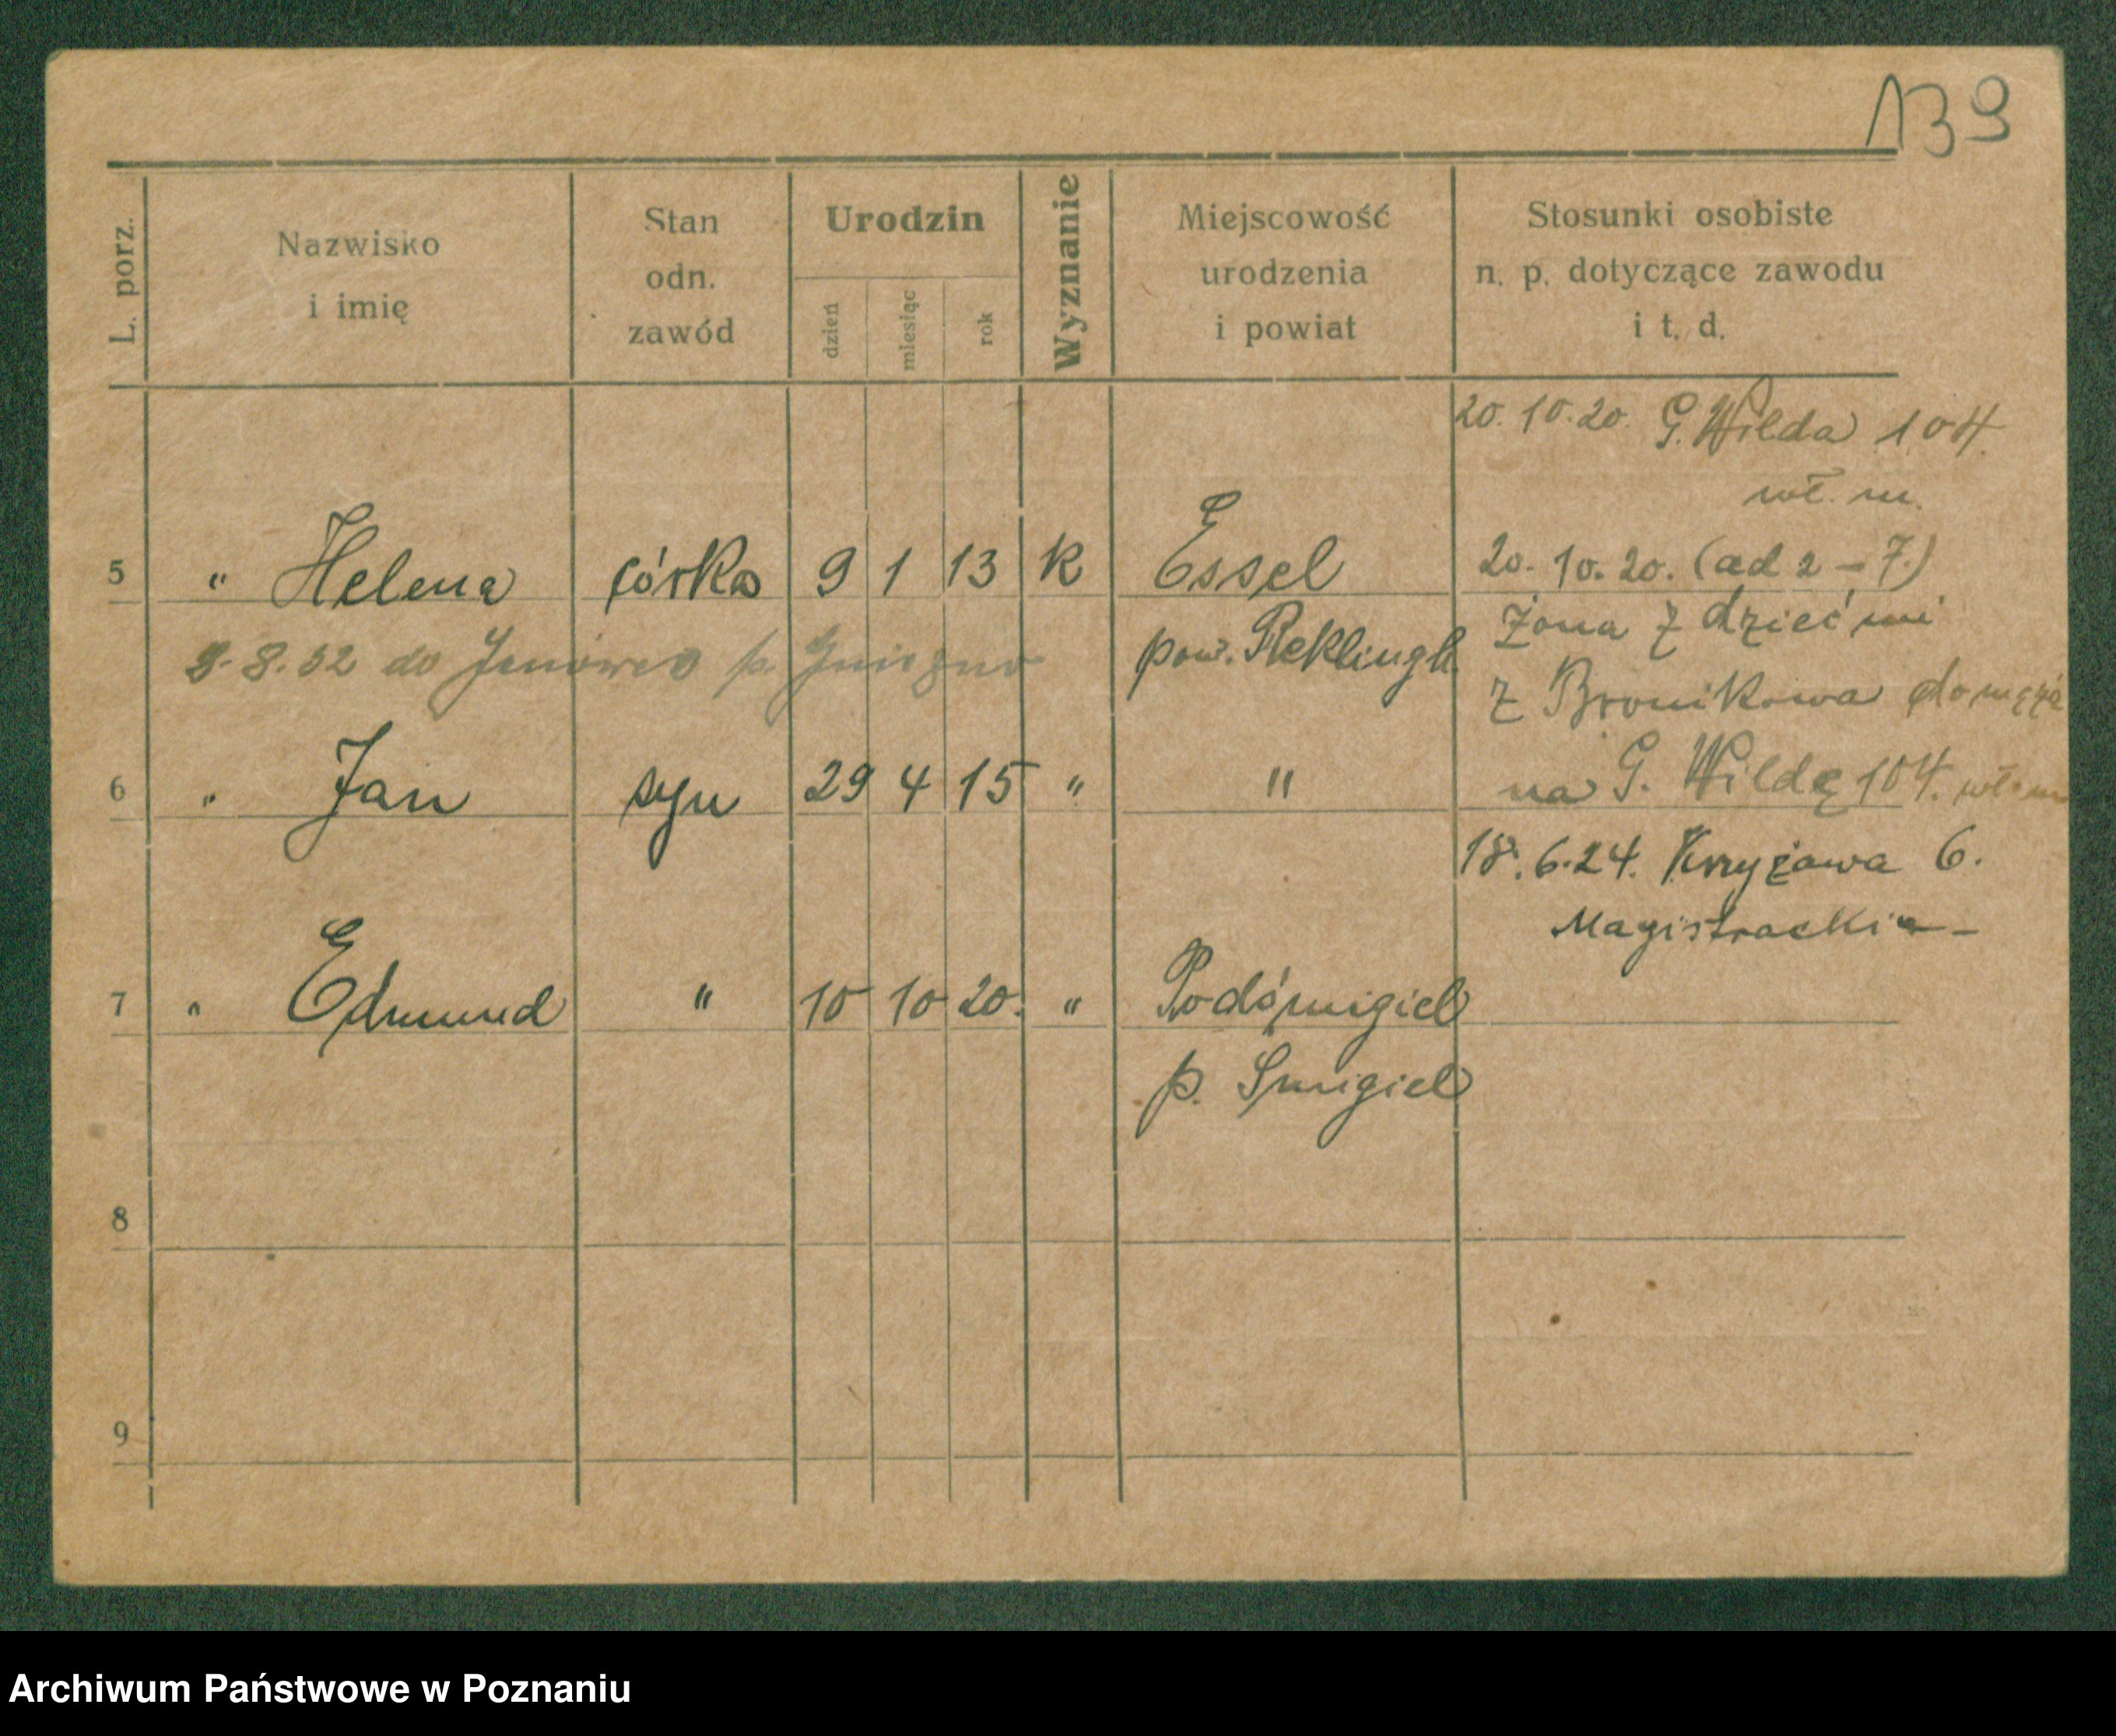 139
L. porz.
Nazwisko
i imię
Stan
odn.
zawód
Urodzin
dzień
miesiąc
rok
Wyznanie
Miejscowość
urodzenia
i powiat
Stosunki osobiste
n. p. dotyczące zawodu
i t. d.
20.10.20. G. Wilda 104.
wł. m.
5 " Helena córka 9 1 13 k Essel 20.10.20. (ad 2-7.)
pow. Reklingh. Żona z dziećmi
8.52 do p. Gniezno z Bronikowa do męża
6 " Jan syn 29 4 15 " " na G. Wildę 104. wł. m
18.6.24. Kryżawa 6.
Magistrackie
7 " Edmund " 10 10 20. " Podśmigiel
p. Śmigiel
8
9
Archiwum Państwowe w Poznaniu